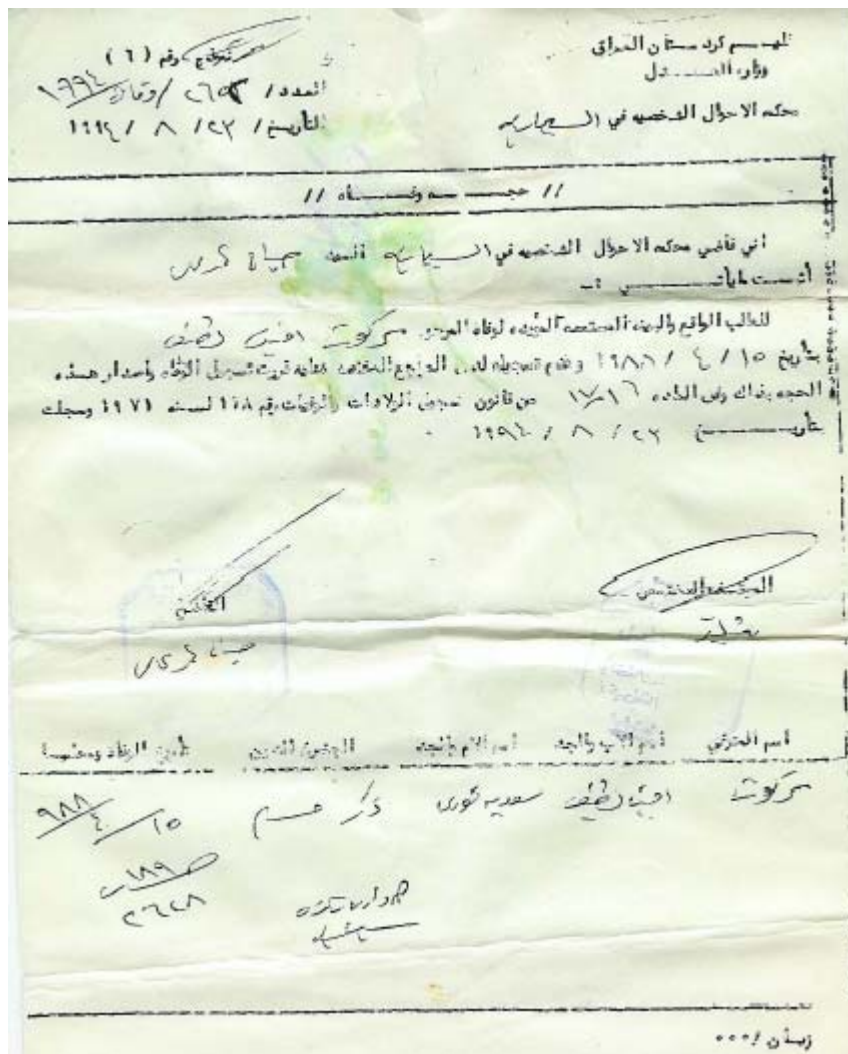 اقليم كردستان العراق
وزارة العدل
محكمه الاحوال الشخصيه في السليمانيه
نموذج رقم (٦)
العدد / ٢٦٥٢ / وفاة / ١٩٩٤
التأريخ / ٢٣ / ٨ / ١٩٩٤
// حجـــه وفـــاه //
اني قاضي محكمه الاحوال الشخصيه في السليمانيه السيد
أثبت ماياتـــي :-
للطلب الواقع والبينه الشخصيه المؤيده لوفاه المرحوم سركوت امين لطيف
بتأريخ ١٥ / ٤ / ١٩٨٨ وعدم تسجيله لدى المراجع المختصه عليه قررت تسجيل الوفاه وأصدار هـــذه
الحجه بذاك وفق الماده ١٦ من قانون تسجيل الولادات والوفيات رقم ١٤٨ لسنه ١٩٧١ وسجلت
بتأريـــــخ ٢٣ / ٨ / ١٩٩٤
الموظف المختص
القاضي
اسم المتوفي اسم الاب والجد اسم الام والجد الجنس الدين تأريخ الوفاة ومحلها
سركوت امين لطيف سعديه نوري ذكر مسلم ١٥ / ٤ / ٩٨٨
ص ١٨٩
٢٦٤٨
زيان / ٠٠٠